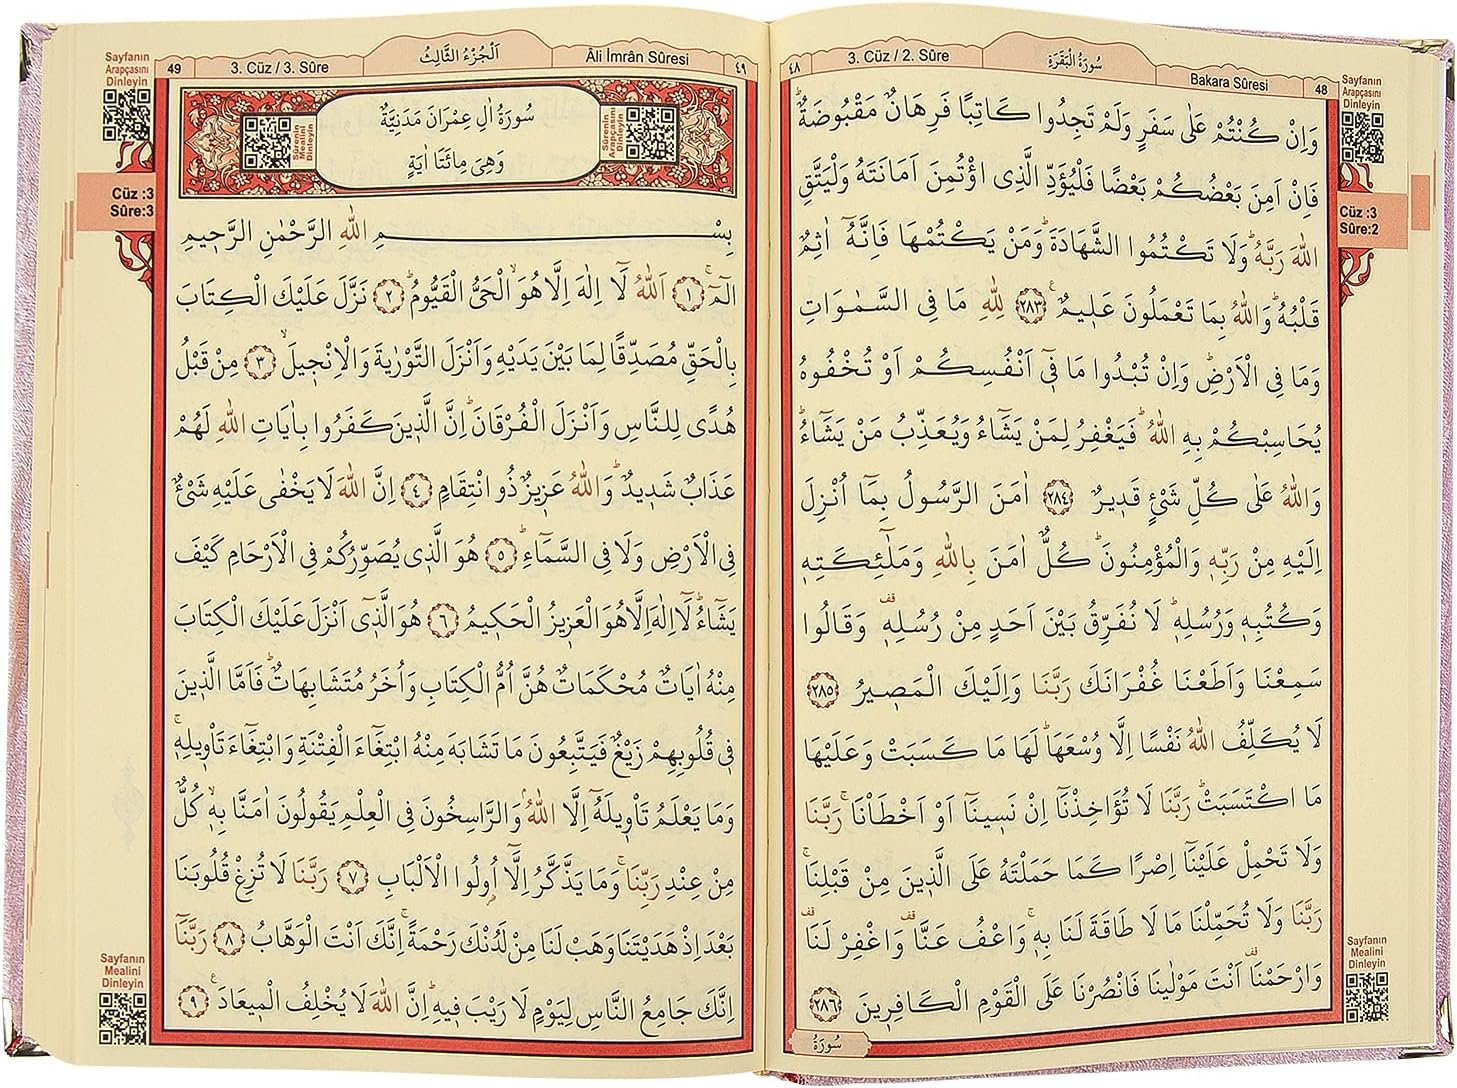 3. Cüz / 2. Sûre
سُورَةُ الْبَقَرَةِ
Bakara Sûresi
48
٤٨
وَاِنْ كُنْتُمْ عَلٰى سَفَرٍ وَلَمْ تَجِدُوا كَاتِبًا فَرِهَانٌ مَقْبُوضَةٌۜ
فَاِنْ اَمِنَ بَعْضُكُمْ بَعْضًا فَلْيُؤَدِّ الَّذِى اؤْتُمِنَ اَمَانَتَهُ وَلْيَتَّقِ
اللّٰهَ رَبَّهُۜ وَلَا تَكْتُمُوا الشَّهَادَةَۜ وَمَنْ يَكْتُمْهَا فَاِنَّهُٓ اٰثِمٌ
قَلْبُهُۜ وَاللّٰهُ بِمَا تَعْمَلُونَ عَلِيمٌ ﴿٢٨٣﴾ لِلّٰهِ مَا فِى السَّمٰوَاتِ
وَمَا فِى الْاَرْضِۜ وَاِنْ تُبْدُوا مَا فِٓى اَنْفُسِكُمْ اَوْ تُخْفُوهُ
يُحَاسِبْكُمْ بِهِ اللّٰهُۜ فَيَغْفِرُ لِمَنْ يَشَٓاءُ وَيُعَذِّبُ مَنْ يَشَٓاءُۜ
وَاللّٰهُ عَلٰى كُلِّ شَىْءٍ قَدِيرٌ ﴿٢٨٤﴾ اٰمَنَ الرَّسُولُ بِمَٓا اُنْزِلَ
اِلَيْهِ مِنْ رَبِّهِ وَالْمُؤْمِنُونَۜ كُلٌّ اٰمَنَ بِاللّٰهِ وَمَلٰٓئِكَتِهِ
وَكُتُبِهِ وَرُسُلِهِۜ لَا نُفَرِّقُ بَيْنَ اَحَدٍ مِنْ رُسُلِهِ وَقَالُوا
سَمِعْنَا وَاَطَعْنَا غُفْرَانَكَ رَبَّنَا وَاِلَيْكَ الْمَصِيرُ ﴿٢٨٥﴾
لَا يُكَلِّفُ اللّٰهُ نَفْسًا اِلَّا وُسْعَهَاۜ لَهَا مَا كَسَبَتْ وَعَلَيْهَا
مَا اكْتَسَبَتْۜ رَبَّنَا لَا تُؤَاخِذْنَٓا اِنْ نَسِينَٓا اَوْ اَخْطَاْنَاۚ رَبَّنَا
وَلَا تَحْمِلْ عَلَيْنَٓا اِصْرًا كَمَا حَمَلْتَهُ عَلَى الَّذِينَ مِنْ قَبْلِنَاۚ
رَبَّنَا وَلَا تُحَمِّلْنَا مَا لَا طَاقَةَ لَنَا بِهِۚ وَاعْفُ عَنَّا وَاغْفِرْ لَنَا
وَارْحَمْنَا اَنْتَ مَوْلٰينَا فَانْصُرْنَا عَلَى الْقَوْمِ الْكَافِرِينَ ﴿٢٨٦﴾
سُورَةُ
Sayfanın
Arapçasını
Dinleyin
Cüz :3
Sûre:2
Sayfanın
Mealini
Dinleyin
49
3. Cüz / 3. Sûre
اَلْجُزْءُ الثَّالِثُ
Âli İmrân Sûresi
٤٩
سُورَةُ اٰلِ عِمْرَانَ مَدَنِيَّةٌ
وَهِىَ مِائَتَا اٰيَةٍ
Sûrenin
Mealini
Dinleyin
Sûrenin
Arapçasını
Dinleyin
بِسْمِ اللّٰهِ الرَّحْمٰنِ الرَّحِيمِ
الٓمٓۚ ﴿١﴾ اَللّٰهُ لَٓا اِلٰهَ اِلَّا هُوَۙ الْحَىُّ الْقَيُّومُۜ ﴿٢﴾ نَزَّلَ عَلَيْكَ الْكِتَابَ
بِالْحَقِّ مُصَدِّقًا لِمَا بَيْنَ يَدَيْهِ وَاَنْزَلَ التَّوْرٰيةَ وَالْاِنْجِيلَۙ ﴿٣﴾ مِنْ قَبْلُ
هُدًى لِلنَّاسِ وَاَنْزَلَ الْفُرْقَانَۜ اِنَّ الَّذِينَ كَفَرُوا بِاٰيَاتِ اللّٰهِ لَهُمْ
عَذَابٌ شَدِيدٌۜ وَاللّٰهُ عَزِيزٌ ذُو انْتِقَامٍ ﴿٤﴾ اِنَّ اللّٰهَ لَا يَخْفٰى عَلَيْهِ شَىْءٌ
فِى الْاَرْضِ وَلَا فِى السَّمَٓاءِۜ ﴿٥﴾ هُوَ الَّذِى يُصَوِّرُكُمْ فِى الْاَرْحَامِ كَيْفَ
يَشَٓاءُۜ لَٓا اِلٰهَ اِلَّا هُوَ الْعَزِيزُ الْحَكِيمُ ﴿٦﴾ هُوَ الَّذِٓى اَنْزَلَ عَلَيْكَ الْكِتَابَ
مِنْهُ اٰيَاتٌ مُحْكَمَاتٌ هُنَّ اُمُّ الْكِتَابِ وَاُخَرُ مُتَشَابِهَاتٌۜ فَاَمَّا الَّذِينَ
فِى قُلُوبِهِمْ زَيْغٌ فَيَتَّبِعُونَ مَا تَشَابَهَ مِنْهُ ابْتِغَٓاءَ الْفِتْنَةِ وَابْتِغَٓاءَ تَاْوِيلِهِۚ
وَمَا يَعْلَمُ تَاْوِيلَهُٓ اِلَّا اللّٰهُۢ وَالرَّاسِخُونَ فِى الْعِلْمِ يَقُولُونَ اٰمَنَّا بِهِۙ كُلٌّ
مِنْ عِنْدِ رَبِّنَاۚ وَمَا يَذَّكَّرُ اِلَّٓا اُولُوا الْاَلْبَابِ ﴿٧﴾ رَبَّنَا لَا تُزِغْ قُلُوبَنَا
بَعْدَ اِذْ هَدَيْتَنَا وَهَبْ لَنَا مِنْ لَدُنْكَ رَحْمَةًۚ اِنَّكَ اَنْتَ الْوَهَّابُ ﴿٨﴾ رَبَّنَٓا
اِنَّكَ جَامِعُ النَّاسِ لِيَوْمٍ لَا رَيْبَ فِيهِۜ اِنَّ اللّٰهَ لَا يُخْلِفُ الْمِيعَادَ ﴿٩﴾
Sayfanın
Arapçasını
Dinleyin
Cüz :3
Sûre:3
Sayfanın
Mealini
Dinleyin